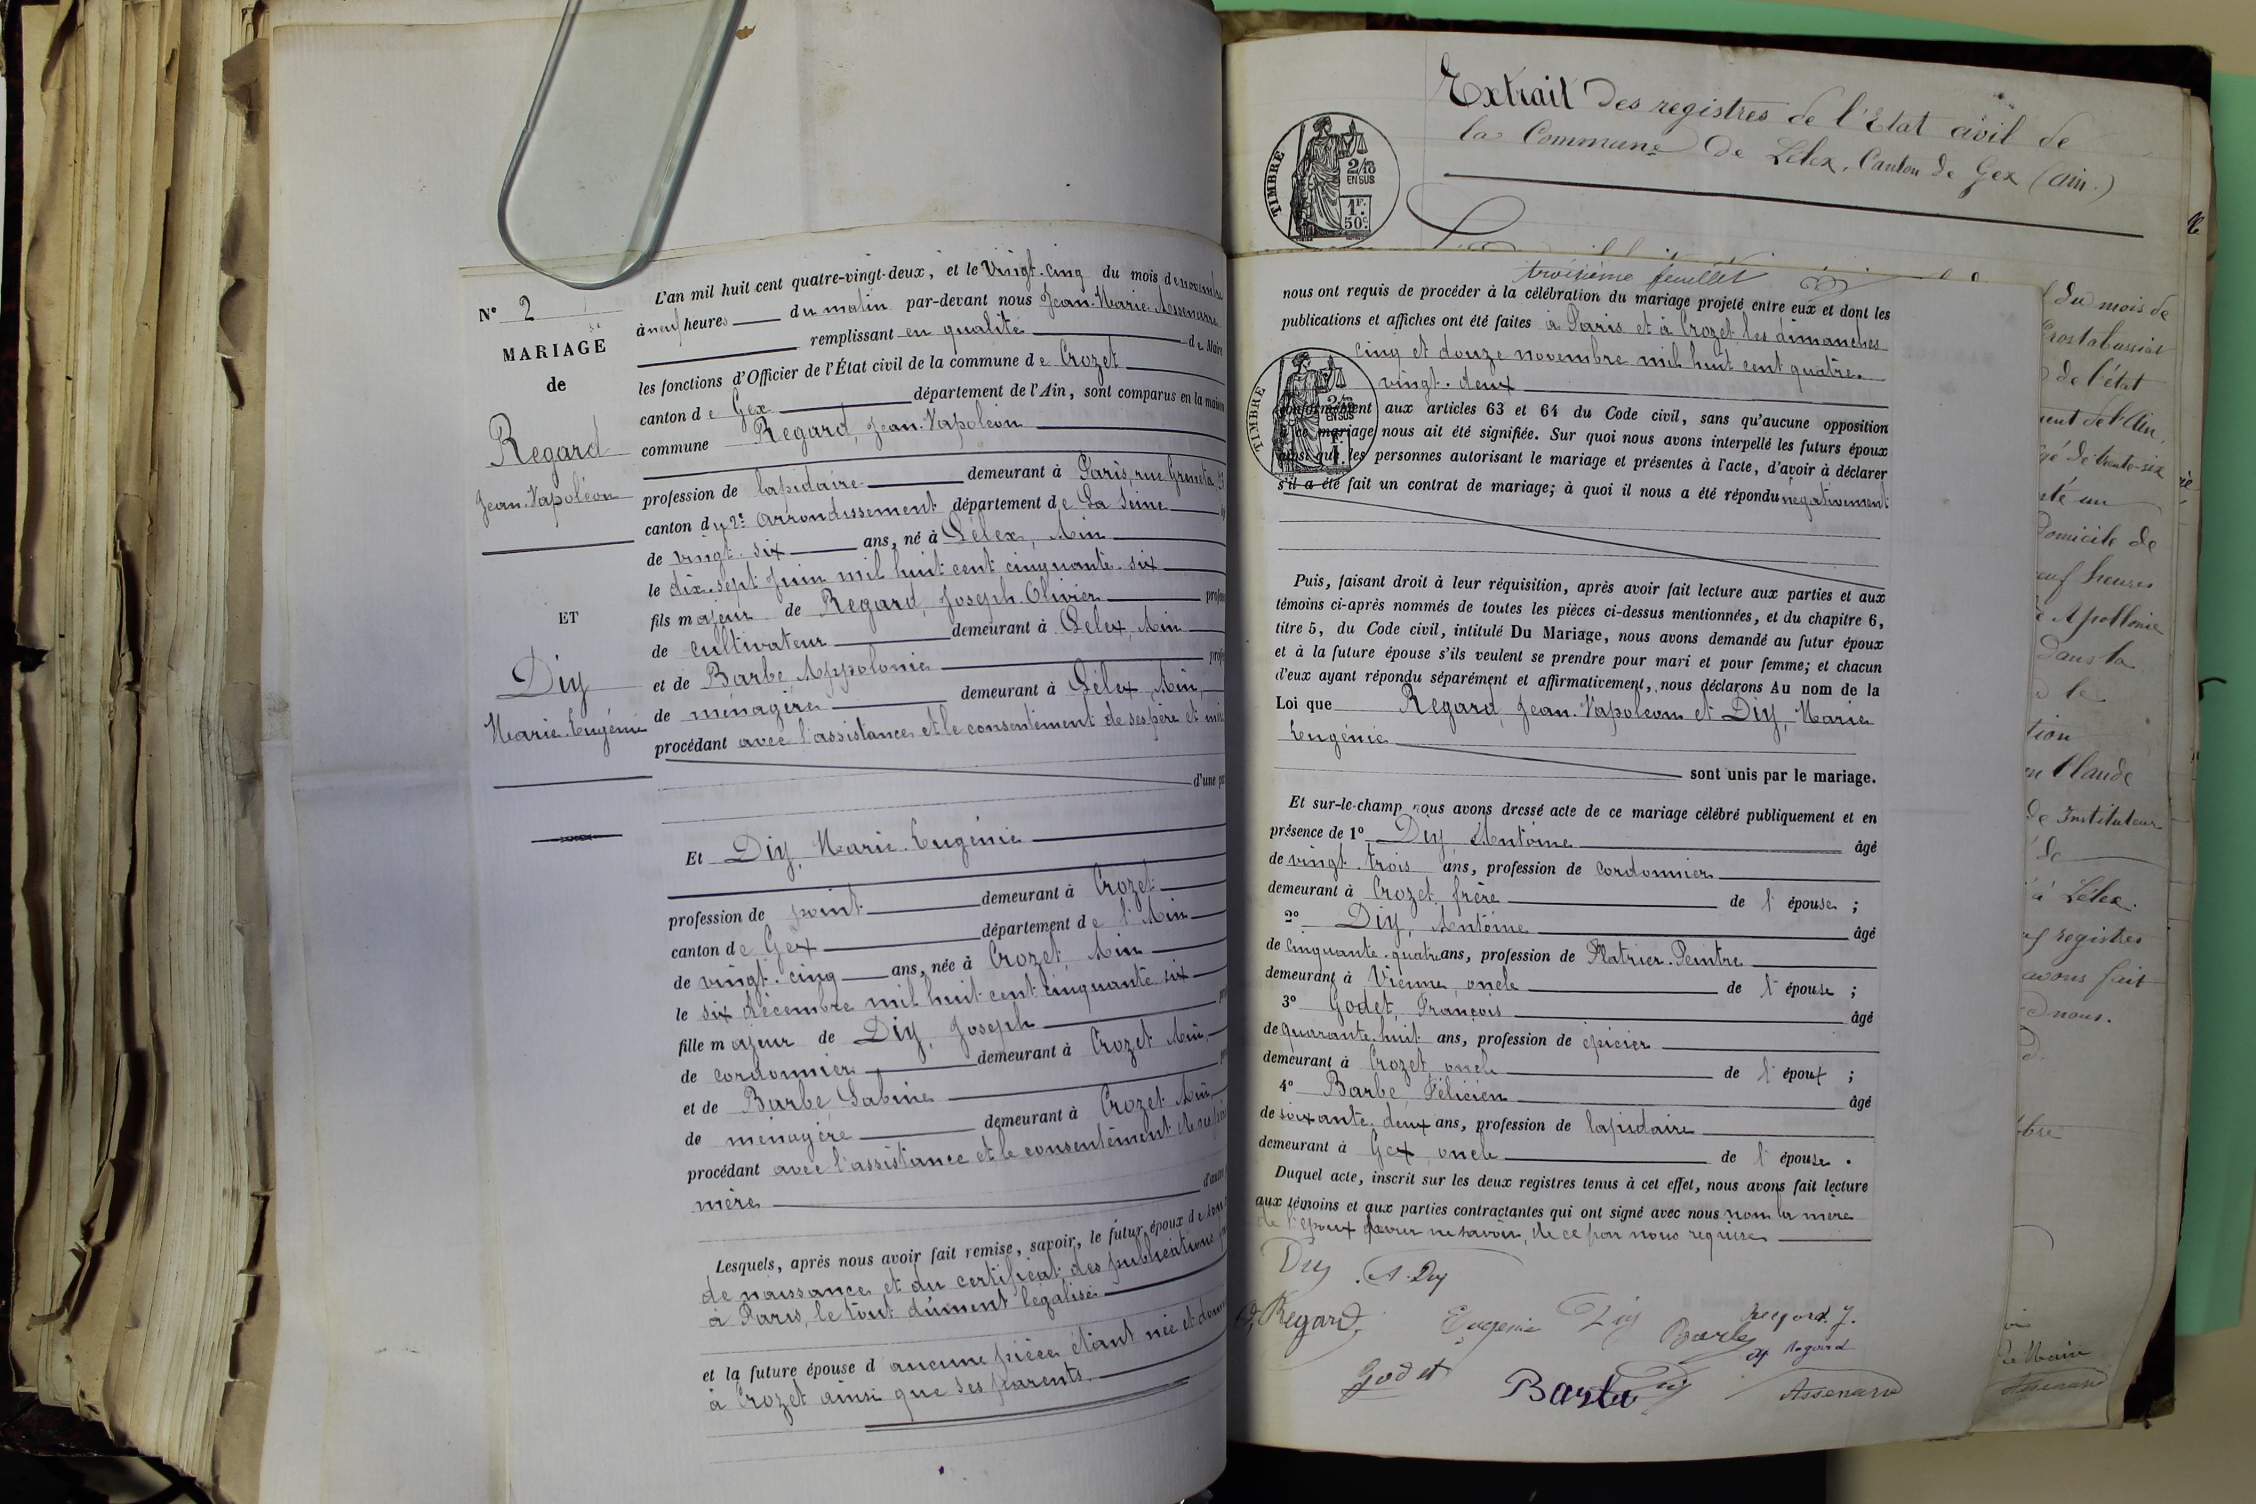 N° 2
MARIAGE
de
Regard
Jean-Napoléon
ET
Diy
Marie-Eugénie
L'an mil huit cent quatre-vingt-deux, et le vingt-cinq du mois de novembre
à neuf heures du matin par-devant nous Jean-Marie Assenare
remplissant en qualité de Maire
les fonctions d'Officier de l'État civil de la commune de Crozet
canton de Gex département de l'Ain, sont comparus en la maison
commune Regard, Jean-Napoléon
profession de lapidaire demeurant à Paris, rue Greneta,
canton du 2e arrondissement département de La Seine
de vingt-six ans, né à Lélex, Ain
le dix-sept juin mil huit cent cinquante-six
fils majeur de Regard, Joseph-Olivier
de cultivateur demeurant à Lélex, Ain
et de Barbe Appolonie
de ménagère demeurant à Lélex, Ain,
procédant avec l'assistance et le consentement de ses père et
d'une
Et Diy, Marie-Eugénie
profession de point demeurant à Crozet
canton de Gex département de l'Ain
de vingt-cinq ans, née à Crozet, Ain
le six décembre mil huit cent cinquante six
fille majeur de Diy, Joseph
de cordonnier demeurant à Crozet Ain,
et de Barbe Sabine
de ménagère demeurant à Crozet Ain,
procédant avec l'assistance et le consentement de ses
mère
Lesquels, après nous avoir fait remise, savoir, le futur époux de son
de naissance et du certificat des publications
à Paris, le tout dûment légalisé
et la future épouse d'aucune pièce étant née et
à Crozet ainsi que ses parents.
Extrait des registres de l'Etat civil de
la Commune de Lélex, Canton de Gex (Ain.)
TIMBRE
2/10
EN SUS
1F.
50c.
troisième feuillet
nous ont requis de procéder à la célébration du mariage projeté entre eux et dont les
publications et affiches ont été faites à Paris et à Crozet les dimanches
cinq et douze novembre mil huit cent quatre-
vingt-deux
TIMBRE
2/10
EN SUS
conformément aux articles 63 et 64 du Code civil, sans qu'aucune opposition
à ce mariage nous ait été signifiée. Sur quoi nous avons interpellé les futurs époux
ainsi que les personnes autorisant le mariage et présentes à l'acte, d'avoir à déclarer
s'il a été fait un contrat de mariage; à quoi il nous a été répondu négativement
Puis, faisant droit à leur réquisition, après avoir fait lecture aux parties et aux
témoins ci-après nommés de toutes les pièces ci-dessus mentionnées, et du chapitre 6,
titre 5, du Code civil, intitulé Du Mariage, nous avons demandé au futur époux
et à la future épouse s'ils veulent se prendre pour mari et pour femme; et chacun
d'eux ayant répondu séparément et affirmativement, nous déclarons Au nom de la
Loi que Regard, Jean-Napoléon et Diy, Marie
Eugénie
sont unis par le mariage.
Et sur-le-champ nous avons dressé acte de ce mariage célébré publiquement et en
présence de 1° Diy Antoine âgé
de vingt-trois ans, profession de cordonnier
demeurant à Crozet, frère de l'épouse ;
2° Diy, Antoine âgé
de cinquante-quatre ans, profession de Platrier-Peintre
demeurant à Vienne, oncle de l'épouse ;
3° Godet, François âgé
de quarante-huit ans, profession de épicier
demeurant à Crozet oncle de l'époux ;
4° Barbe, Félicien âgé
de soixante-deux ans, profession de lapidaire
demeurant à Gex, oncle de l'épouse.
Duquel acte, inscrit sur les deux registres tenus à cet effet, nous avons fait lecture
aux témoins et aux parties contractantes qui ont signé avec nous non la mère
de l'époux pour ne savoir, de ce par nous requise
Diy A. Diy
Regard Eugénie Diy Barbe Regard. J.
Regard
Godet Barbe Diy Assenare
du mois de
de l'état
ment de l'Ain,
gé de trente-six
été un
Domicile de
euf heures
Apollonie
dans la
le
tion
Claude
de Instituteur
de
à Lélex.
registres
avons fait
nous.
bre
Maire